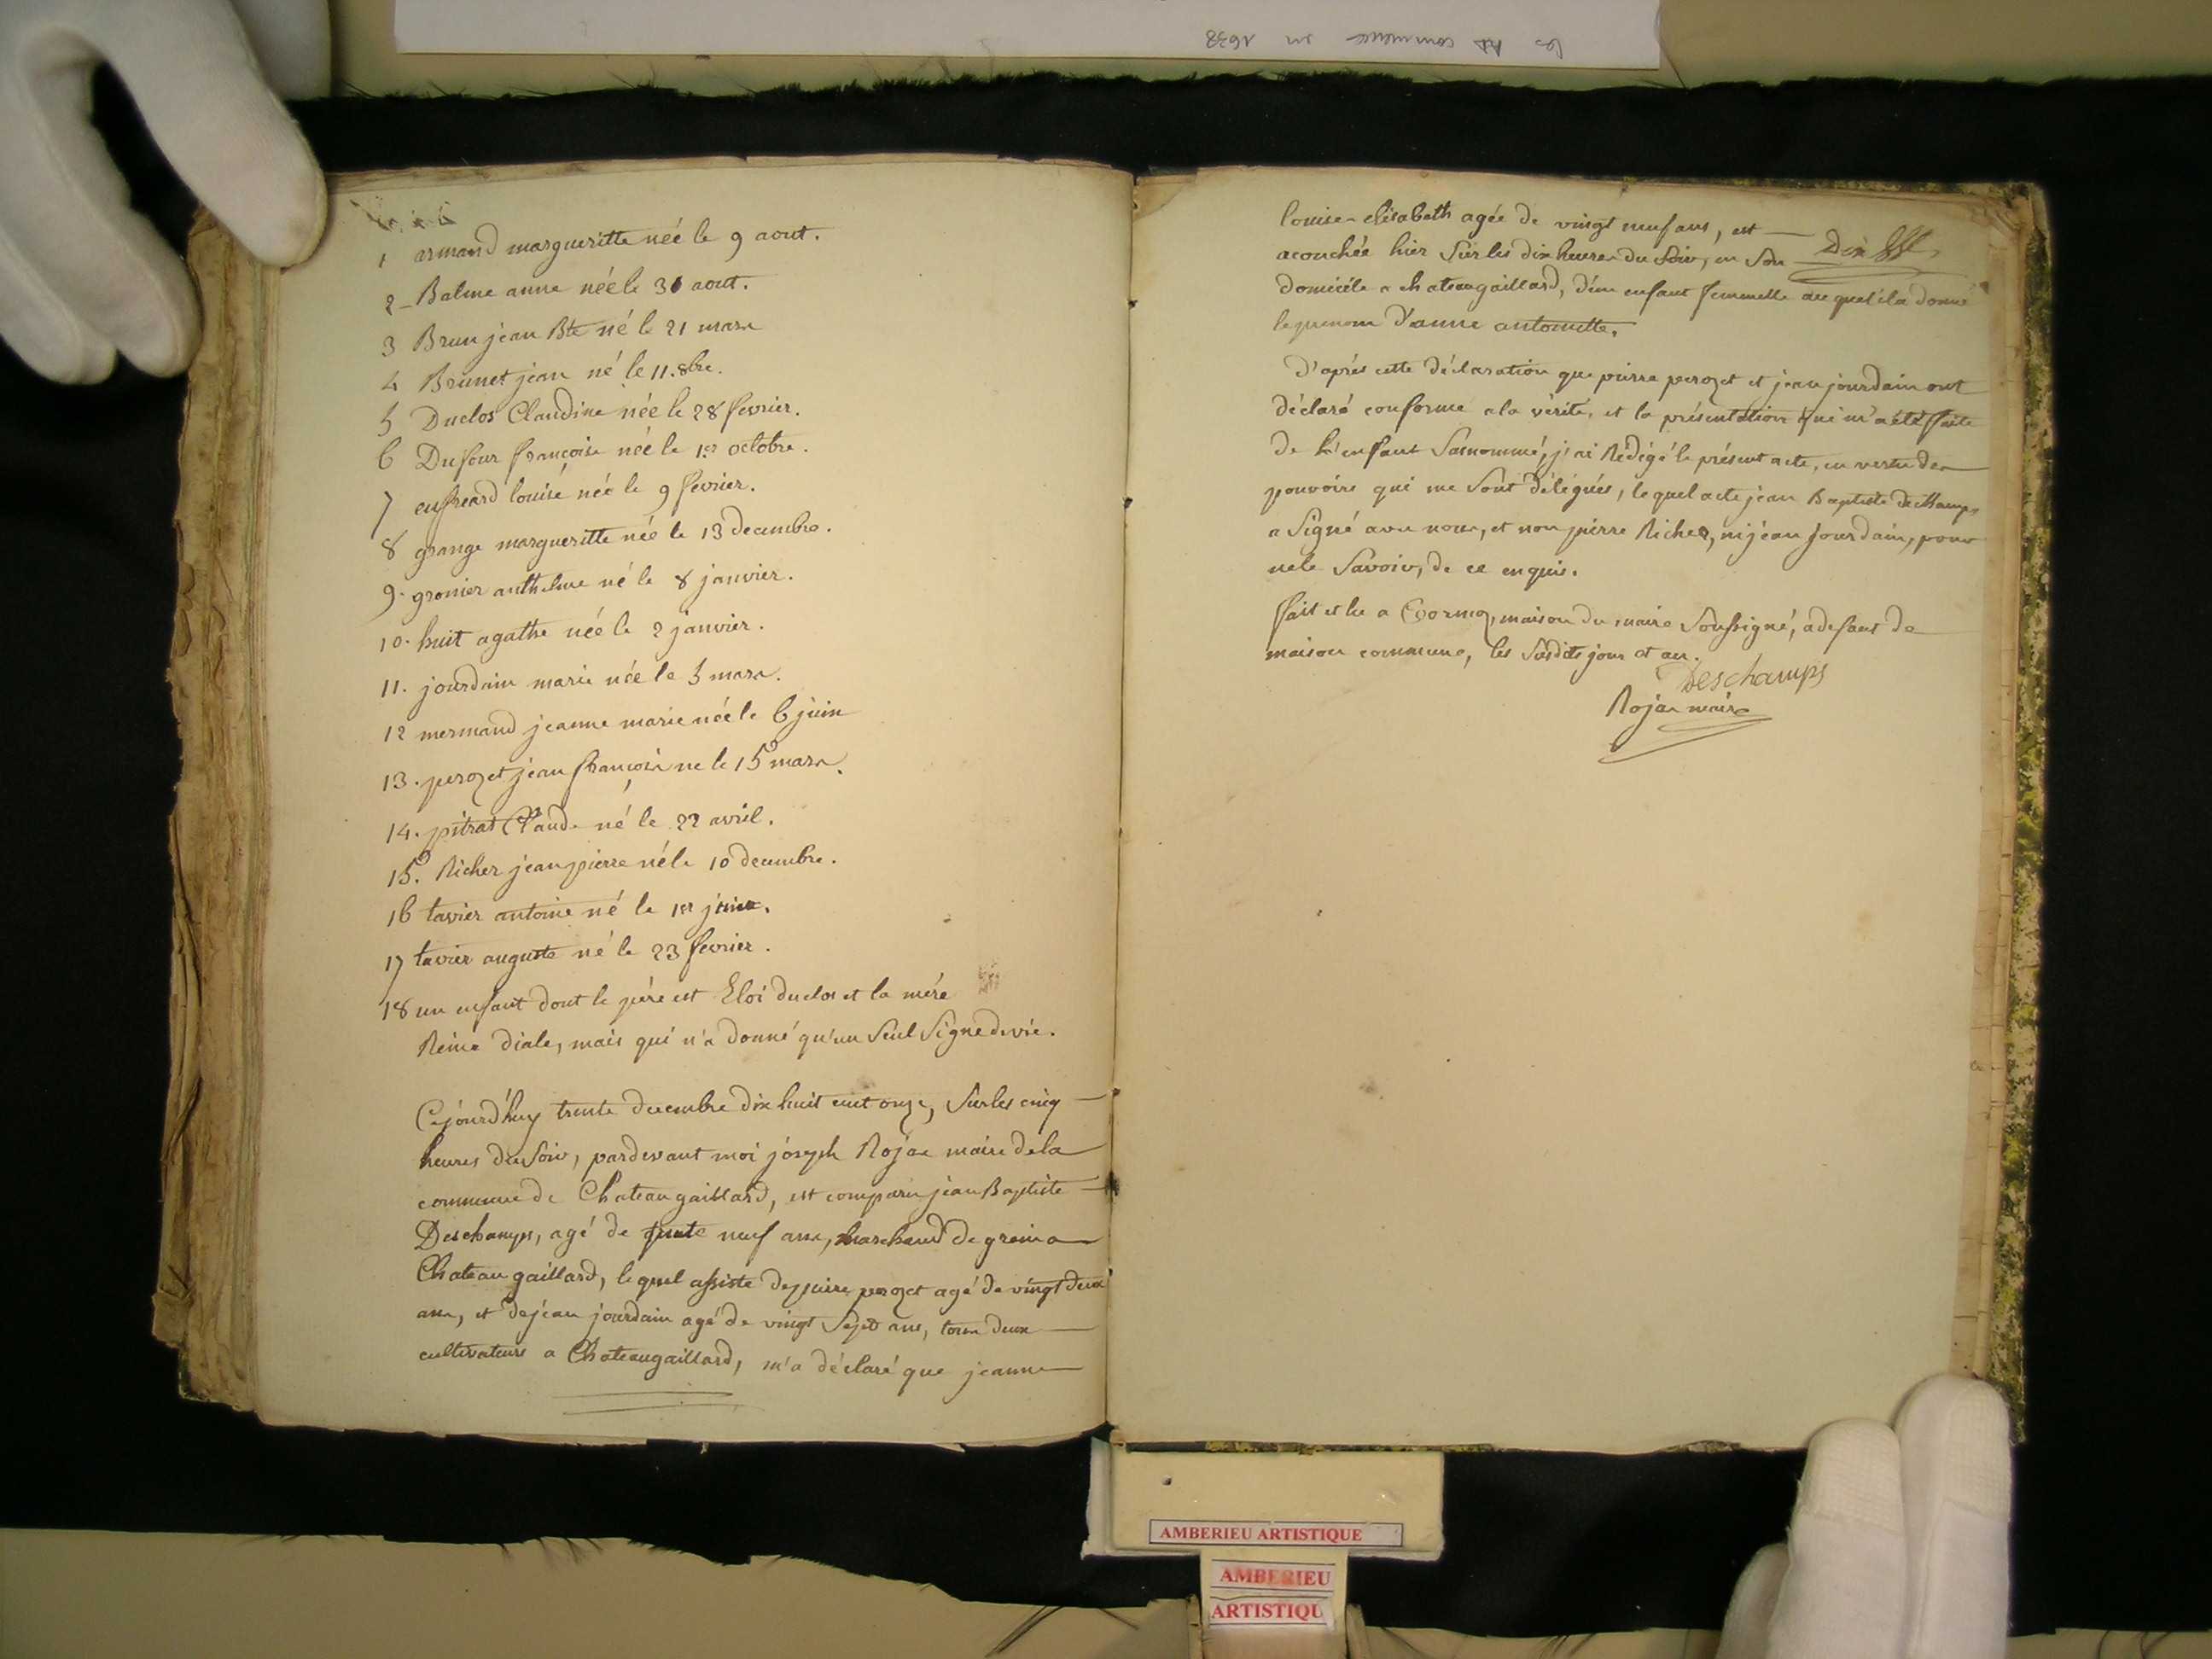 les  commence en 1638
1 armand margueritte neé le 9 aout.
2 Balme anne neé le 30 aout.
3 Brun jean Bte né le 21 mars
4 Brunet jean né le 11. 8bre.
5 Duclos Claudine née le 28 fevrier.
6 Dufour françoise neé le 1er octobre.
7 louise née le 9 fevrier.
8 grange margueritte neé le 13 decembre.
9. gronier anthelme né le 8 janvier.
10. huit agathe neé le 2 janvier.
11. jourdain marie née le 5 mars.
12 mermand jeanne marie neé le 6 juin
13. perozet jean françois ne le 15 mars.
14. pitrat Claude né le 22 avril.
15. Richer jean pierre né le 10 decembre.
16 tavier antoine né le 1er
17 tavier auguste né le 23 fevrier.
18 un enfant dont le pére est Eloi duclos et la mére
Reine diale, mais qui n'a donné qu'un seul signe de vie.
Cejourd'huy trente decembre dix huit cent onze, sur les cinq
heures du soir, pardevant moi joseph Rojas maire de la
commune de Chateaugaillard, est comparu jean Baptiste
Deschamps, agé de trente neuf ans, marchand de grains a
Chateaugaillard, le quel assisté de pierre perozet agé de vingt deux
ans, et de jean jourdain agé de vingt sept ans, tous deux
cultivateurs a Chateaugaillard, m'a déclaré que jeanne
louise elisabeth agée de vingt neuf ans, est
acouchée hier sur les dix heures du soir, en son
domicile a chateaugaillard, d'un enfant femmelle au quel il a donné
le prenom d'anne antoinette.
D'aprés cette déclaration que pierre perozet et jean jourdain ont
déclaré conforme a la vérité, et la présentation qui m'a été faite
de l'enfant susnommé, j'ai rédigé le présent acte, en vertu des
pouvoirs qui me sont délégués, le quel acte jean Baptiste deschamps
a signé avec nous, et non pierre Richer, ni jean jourdain, pour
ne le savoir, de ce enquis.
fait et lu a Cormoz, maison du maire soussigné, a defaut de
maison commune, les susdits jour et an.
Deschamps
Rojas maire
AMBERIEU ARTISTIQUE
AMBERIEU
ARTISTIQU